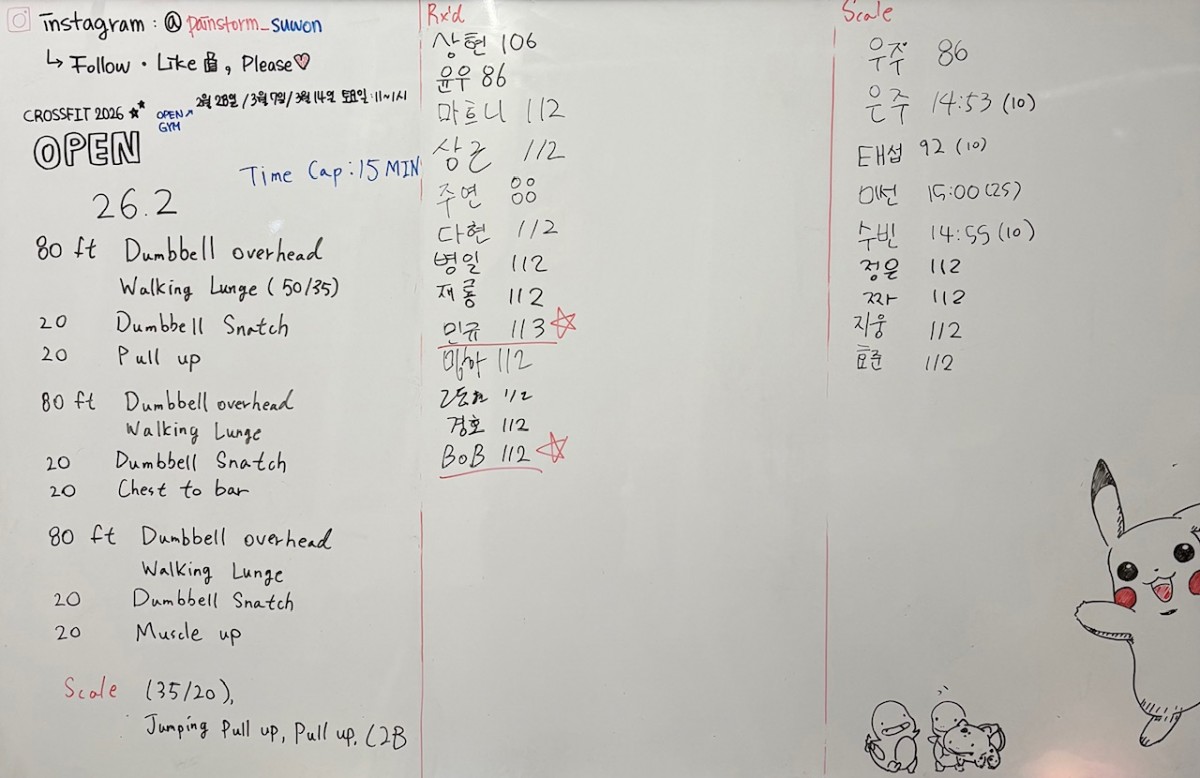 instagram : @ painstorm_suwon
↳ Follow · Like , Please♡
2월 28일 / 3월 7일 / 3월 14일 토요일 : 11~1시
CROSSFIT 2026
OPEN↗
GYM
OPEN
Time Cap : 15 MIN
26.2
80 ft Dumbbell overhead
Walking Lunge (50/35)
20 Dumbbell Snatch
20 Pull up
80 ft Dumbbell overhead
Walking Lunge
20 Dumbbell Snatch
20 Chest to bar
80 ft Dumbbell overhead
Walking Lunge
20 Dumbbell Snatch
20 Muscle up
Scale (35/20),
Jumping Pull up, Pull up, C2B
Rx'd
상현 106
윤우 86
마트니 112
상근 112
주연 88
다현 112
병일 112
재롱 112
민규 113 ☆
112
112
경호 112
BOB 112 ☆
Scale
우주 86
은주 14:53 (10)
태섭 92 (10)
미선 15:00 (25)
수빈 14:55 (10)
정은 112
짜 112
지웅 112
효준 112